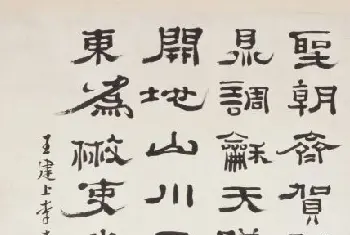 聖朝齊賀
鼎調龢天
開地山川
東為散吏
王建上李